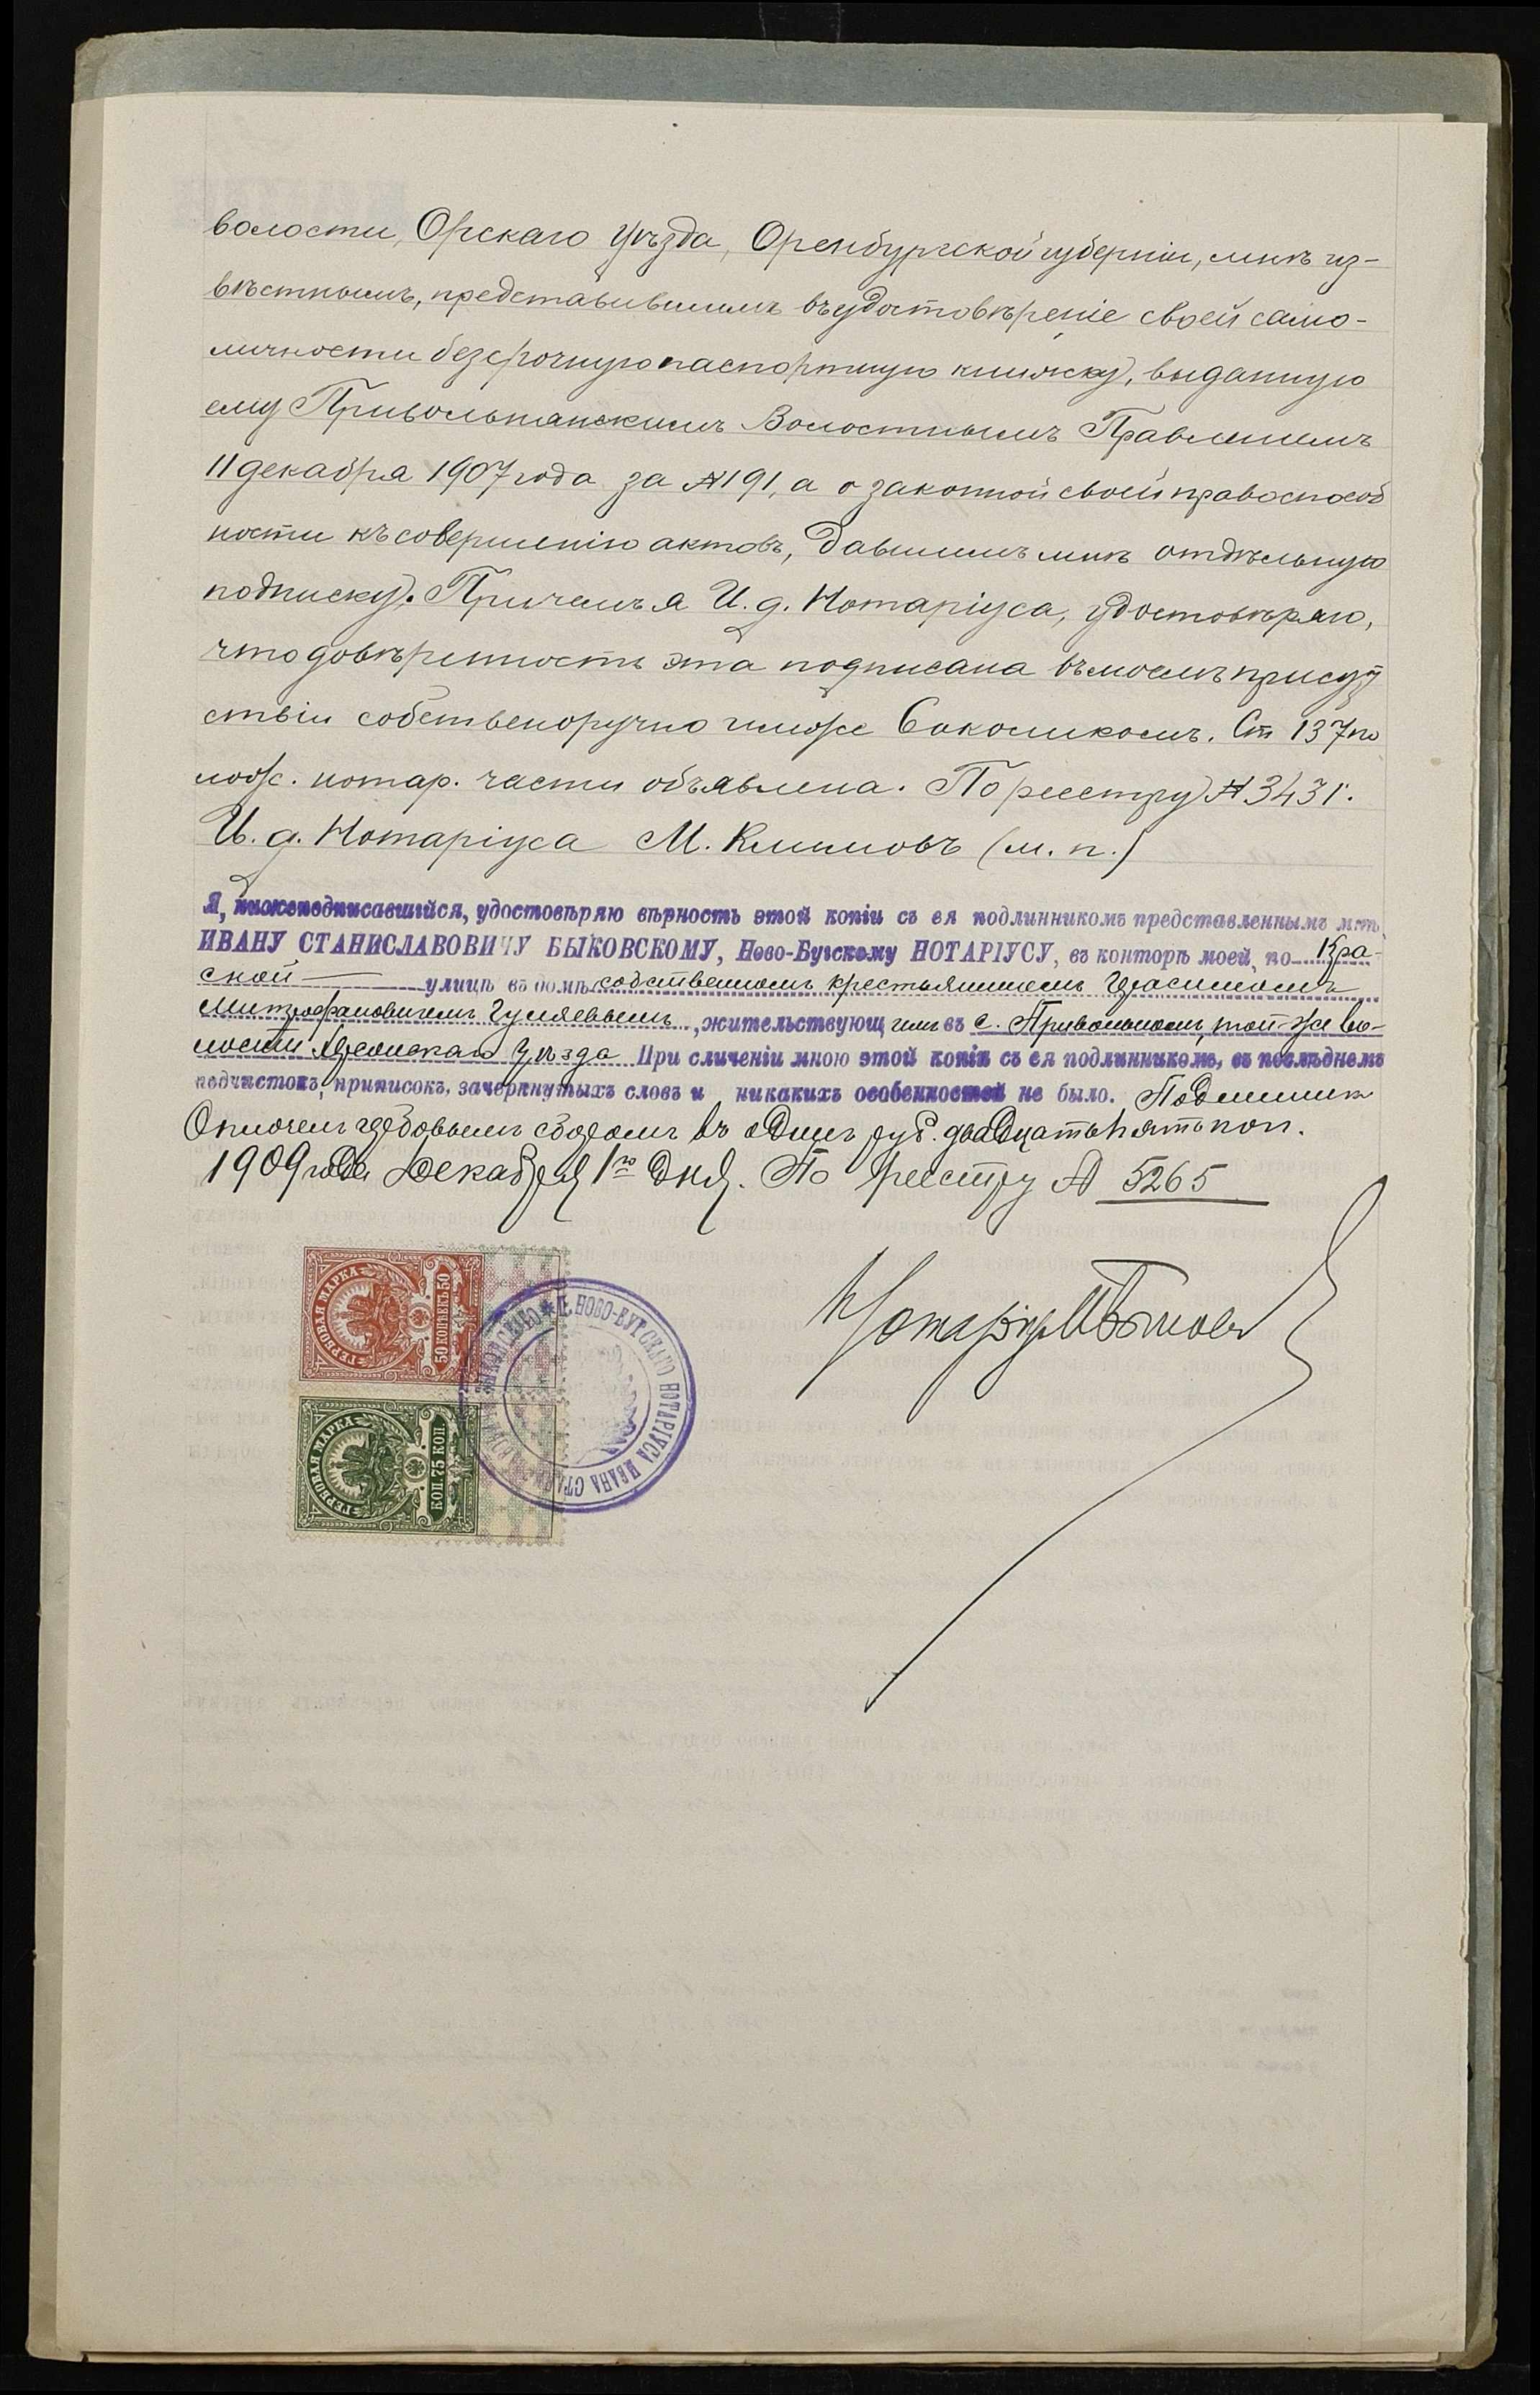 волости, Орскаго уѣзда, Оренбургской губерніи, мнѣ из-
вѣстнымъ, представившимъ въ удостовѣреніе своей само-
личности безсрочную паспортную книжку, выданную
ему Привольнанскимъ Волостнымъ Правленіемъ
11 декабря 1907 года за № 191, а о законной своей правоспособ
ности къ совершенію актовъ, давшимъ мнѣ отдѣльную
подписку. Причемъ я И. д. Нотаріуса, удостовѣряю,
что довѣренность эта подписана въ моемъ присут
ствіи собственоручно имъ же Соколикомъ. Ст 137 по
лож. нотар. части объявлена. По реестру № 3431.
И. д. Нотаріуса М. Климовъ (м. п.)
Я, нижеподписавшійся, удостовѣряю вѣрность этой копіи съ ея подлинникомъ представленнымъ мнѣ,
ИВАНУ СТАНИСЛАВОВИЧУ БЫКОВСКОМУ, Ново-Бугскому НОТАРІУСУ, въ конторѣ моей, по
ской улицѣ въ домѣ собственномъ крестьяниномъ Герасимомъ
Митрофановичемъ Гуляевымъ, жительствующимъ въ с. Привольномъ, той-же во-
лости Херсонскаго уѣзда При сличеніи мною этой копіи съ ея подлинникомъ, въ послѣднемъ
подчистокъ, приписокъ, зачеркнутыхъ словъ и никакихъ особенностей не было. Подлинникъ
Оплоченъ гербовымъ сборомъ въ одинъ руб. двадцать пять коп.
1909 года Декабря 1го дня. По реестру № 5265
ГЕРБОВАЯ МАРКА
50 КОПѢЕКЪ 50
ГЕРБОВАЯ МАРКА
КОП. 75 КОП.
П. НОВО-БУГСКАГО НОТАРІУСА ИВАНА
Нотаріусъ